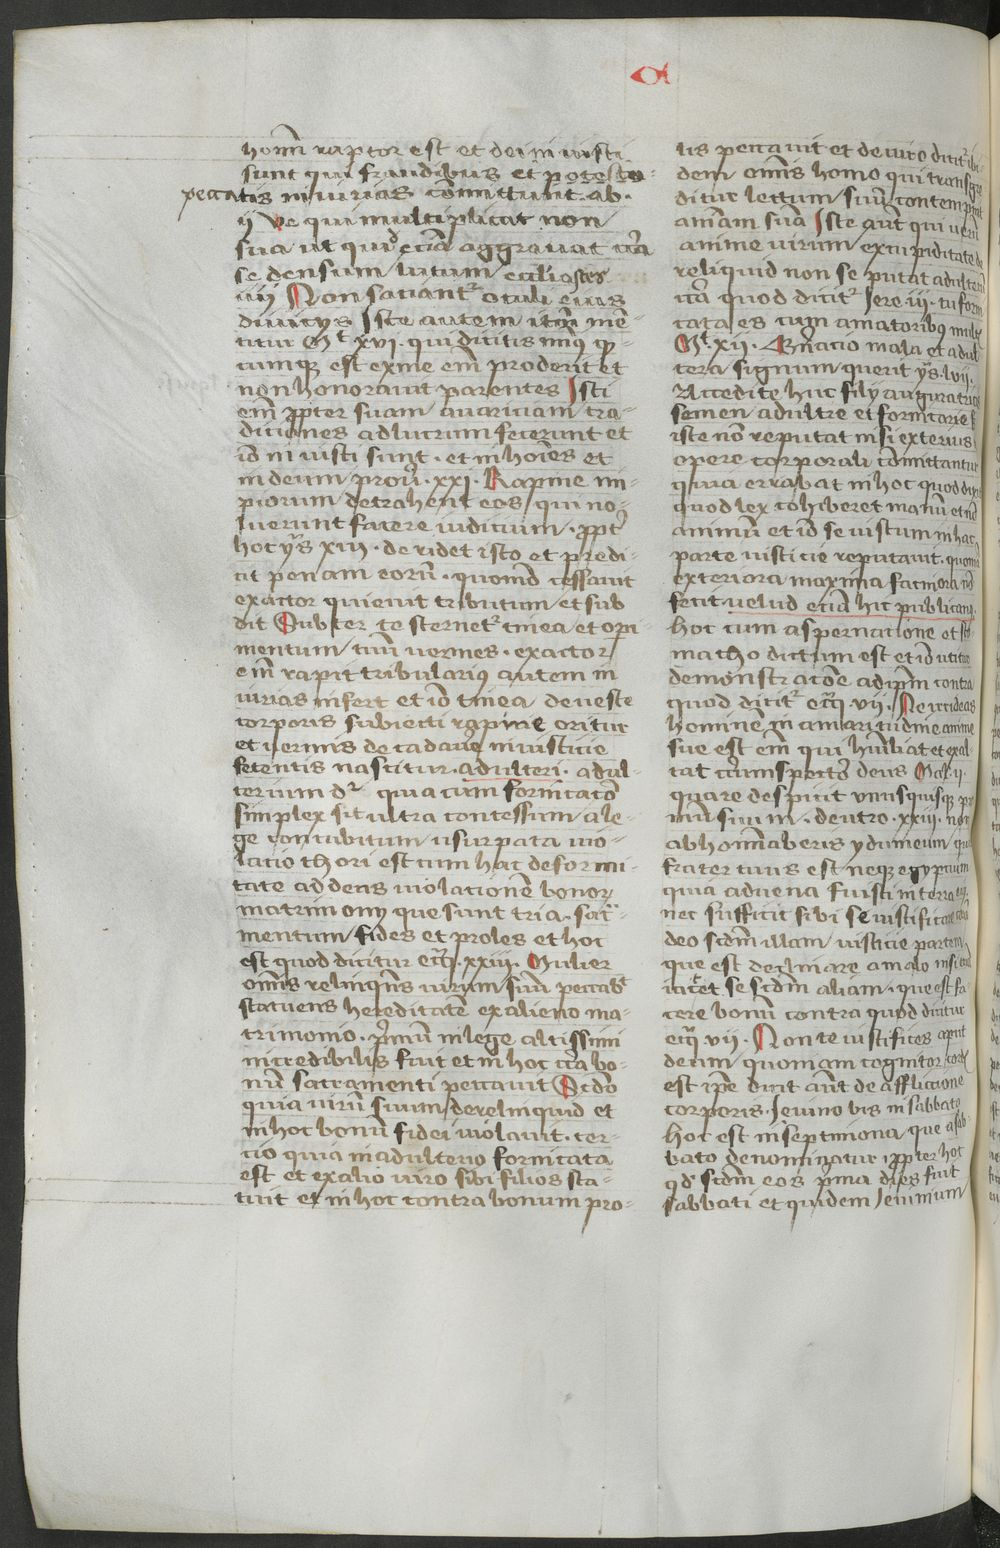 homīn raptor est et dei iniusti
sunt qui fraudibus et potesta
peccatis iniurias cōmittunt. ab.
ii Ve qui multiplicat non
sua ut quid eciā aggrauat cōtra
se densum lutum ecclīastes
iiij Non saciant᷑ oculi eius
diuicijs Iste autem
Mt xvi. qui dicitis
cumqꝫ est ex me em̄ proderit et
non honorauit parentes Isti
em̄ ꝓpter suam auariciam tra
diciones ad lucrum fecerunt et
id iniusti sunt. et in hoīes et
in deum prou̅. xxi. Rapine im
piorum detrahent eos qui no
luerunt facere iudicium. ꝓpt᷑
hoc ys xiiij. deridet isto et predi
cit penam eorū. quomō cessauit
exactor quieuit tributum et sub
dit Subter te sternet᷑ tinea et opi
mentum tuū uermes. exactor
em̄ rapit tributarius autem in
iurias infert et iō tinea de ueste
corporis subiecti rapine oritur
et uermis de cadauēe iniusticie
fetentis nascitur. adulteri. adul
terium d᷑ quia cum fornicacō
simplex sit ultra concessum a le
ge concubitum usurpata uio
lacio thori est cum hac deformi
tate addens uiolacionē bonor
matrimonij que sunt tria. sac᷑
mentum fides et proles et hoc
est quod dicitur ecc̄j. xxiij. Mulier
om̄s relinquēs uirum suū peccabt
statuens hereditatē ex alieno ma
trimonio. p̄mum in lege altissimi
incredibilis fuit et in hoc cōtra bo
nū sacramenti peccauit Scdō
quia uirū suum derelinquid et
in hoc bonū fidei uiolauit. ter
cio quia in adulterio fornicata
est et ex alio uiro sibi filios sta
tuit et in hoc contra bonum pro
lis peccauit et de uiro dicit᷑ ibi
dem omīs homo qui transgre
ditur lectum suū contempnit
animam suā Iste aūt qui uerū
anime uirum ex cupiditate de
reliquid non se putat adulterū
cōtra quod dicit᷑ Iere iii. tu forni
cata es cum amatoribus multis
Mt. xii. Generacio mala et adul
tera signum querit ys. lvij.
Accedite huc filij auguratricis
semen adultre et fornicarie
iste nō reputat nisi exterius
opere corporali cōmittantur
quia errabat in hoc quod dixit
quod lex cohiberet manū et nō
animū et id se iustum in hac
parte iusticie reputauit. quoniā
exteriora maxima facinora nō
fecit uelud eciā hic publicanus
hoc cum aspernacione et sto
macho dictum est et iō utitur
demonstracōe ad ip̄m contra
quod dicit᷑ ecc̄j vii. Ne irrideas
hominē in amaritudine anime
sue est em̄ qui humiliat et exal
tat circumspectōr deus Mal. ij.
quare despicit unusquisqꝫ pro
mū suum. deutro. xxiij. non
abhominaberis ydumeum quia
frater tuus est neqꝫ egyptium
quia aduena fuisti in terra eius
nec sufficit sibi se iustificare coram
deo scdm̄ illam iusticie partem
que est declinare a malo nisi eciam
iactet se scdm̄ aliam. que est fa
cere bonū contra quod dicitur
ecc̄j vii. Non te iustifices apud
deum quoniam cognitor cordis
est ip̄e dicit aūt de afflictione
corporis. Ieiuno bis in sabbato
hoc est in septimana que a sab
bato denominatur ꝓpter hoc
qd scdm̄ eos p̄ma dies fuit
sabbati et quidem Ieiunium